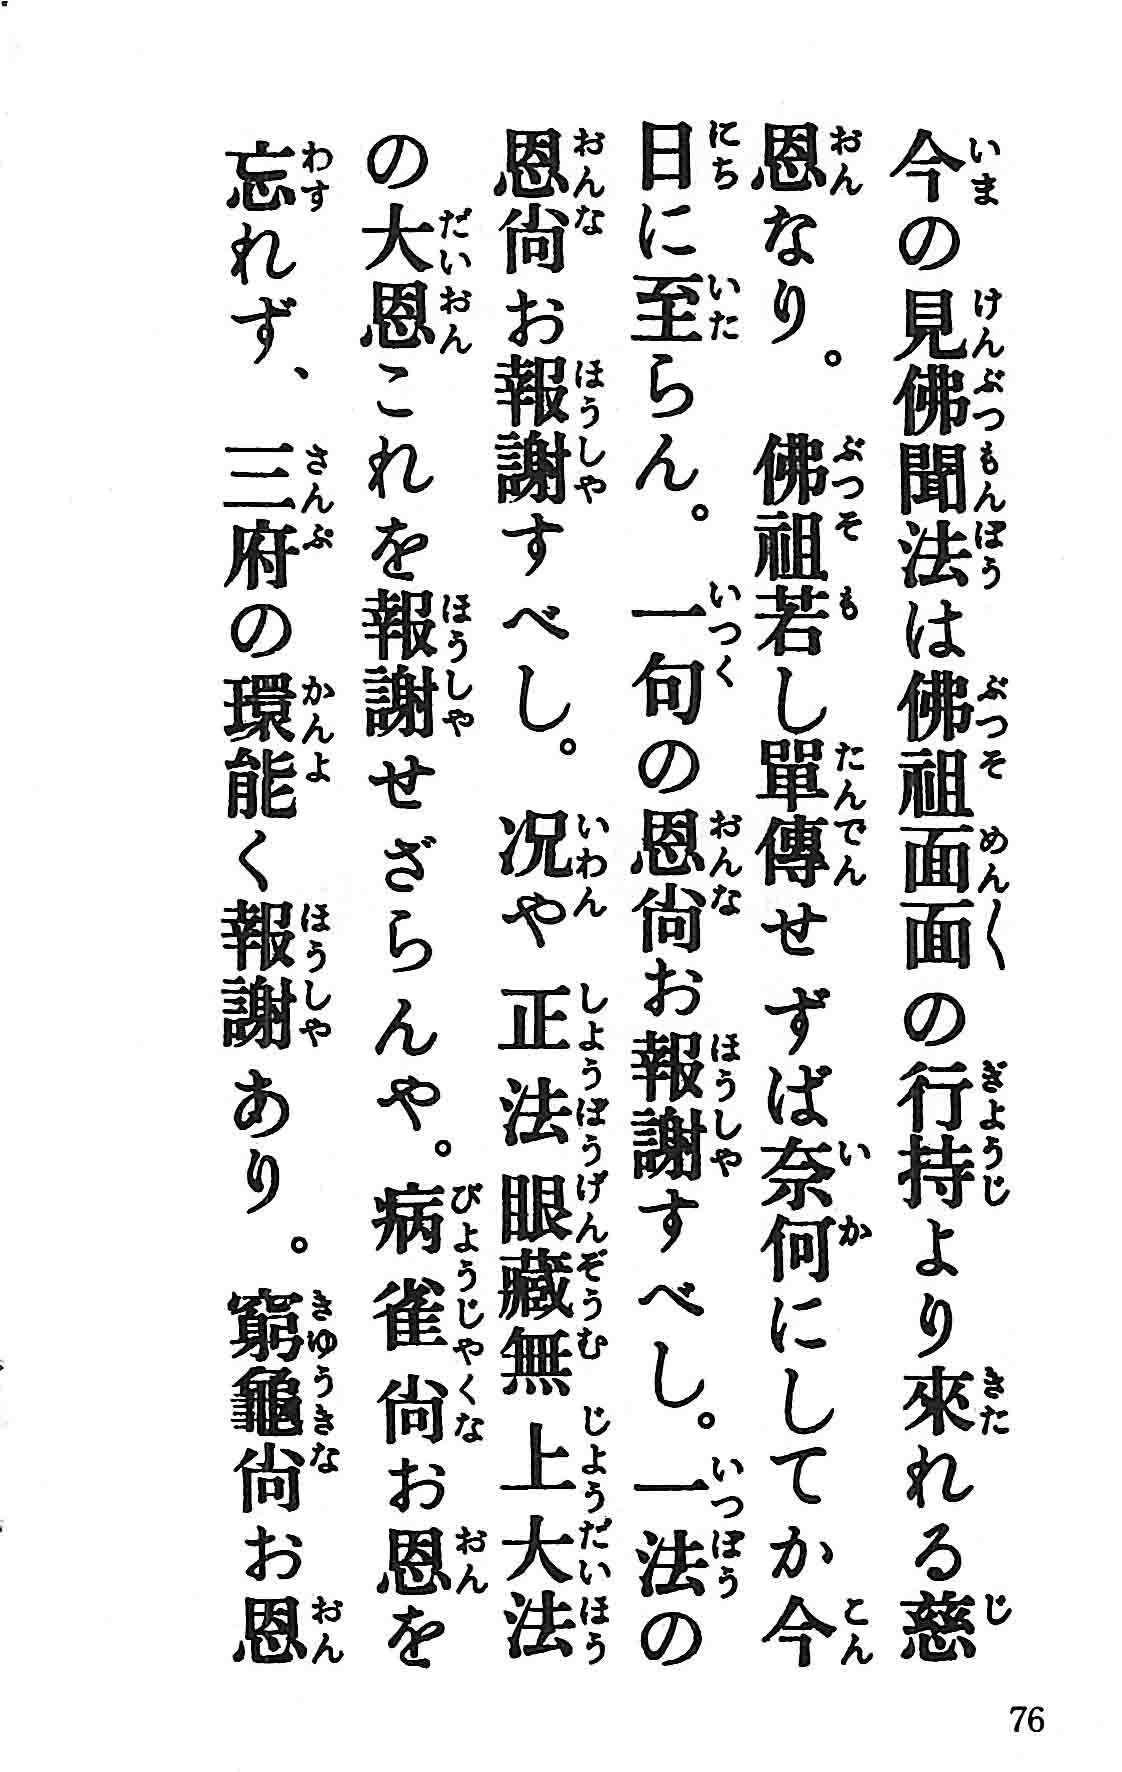 今の見佛聞法は佛祖面面の行持より來れる慈
恩なり。佛祖若し單傳せずば奈何にしてか今
日に至らん。一句の恩尙お報謝すべし。一法の
恩尙お報謝すべし。况や正法眼藏無上大法
の大恩これを報謝せざらんや。病雀尙お恩を
忘れず、三府の環能く報謝あり。窮龜尙お恩
76